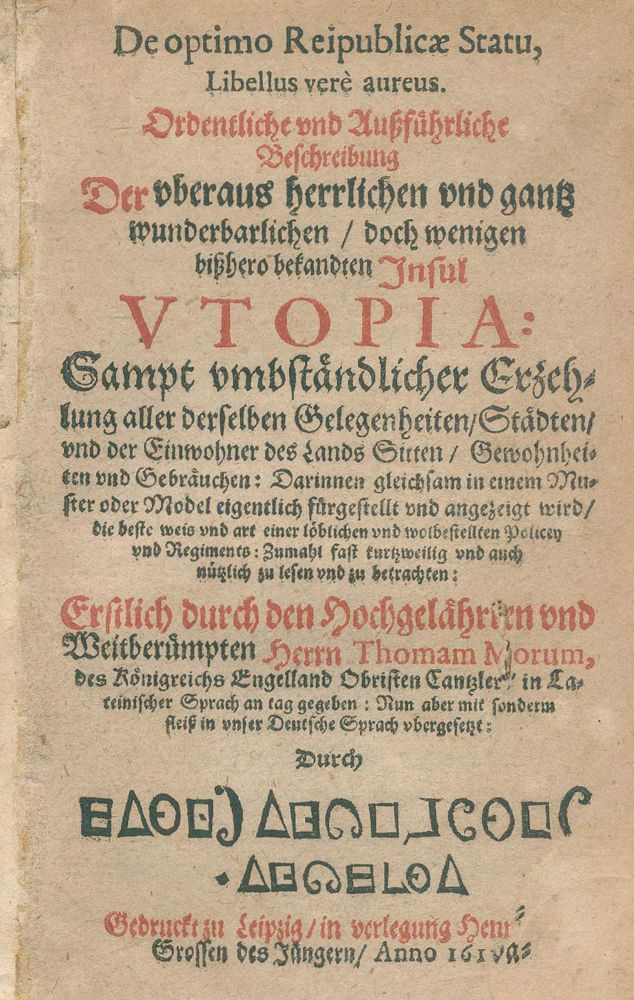 De optimo Reipublicæ Statu,
Libellus verè aureus.
Ordentliche vnd Außführliche
Beschreibung
Der vberaus herrlichen vnd gantz
wunderbarlichen / doch wenigen
bißhero bekandten Insul
VTOPIA:
Sampt vmbständlicher Erzeh-
lung aller derselben Gelegenheiten/Städten/
vnd der Einwohner des Lands Sitten / Gewohnhei-
ten vnd Gebräuchen: Darinnen gleichsam in einem Mu-
ster oder Model eigentlich fürgestellt vnd angezeigt wird/
die beste weis vnd art einer löblichen vnd wolbestellten Policey
vnd Regiments: Zumahl fast kurtzweilig vnd auch
nützlich zu lesen vnd zu betrachten:
Erstlich durch den Hochgelährten vnd
Weitberümpten Herrn Thomam Morum,
des Königreichs Engelland Obristen Cantzler in La-
teinischer Sprach an tag gegeben: Nun aber mit sonderm
fleiß in vnser Deutsche Sprach vbergesetzt:
Durch
Gedruckt zu Leipzig/ in verlegung
Grossen des Jüngern/ Anno